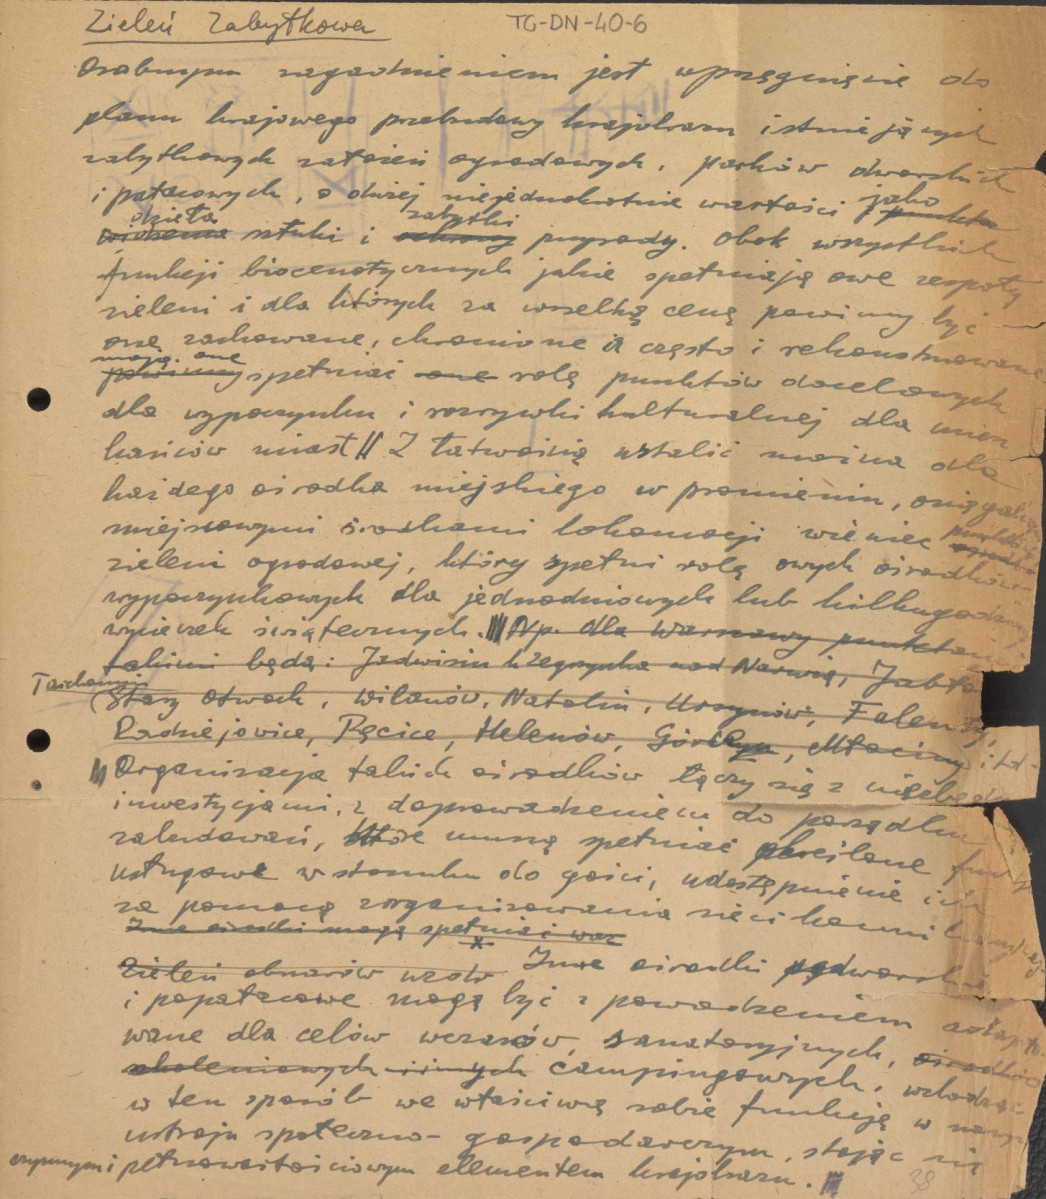 Zieleń Zabytkowa TG-DN-40-6
Osobnym zagadnieniem jest wprzęgnięcie do
planu krajowego przebudowy krajobrazu istniejących
zabytkowych założeń ogrodowych, parków dworskich
i pałacowych, o dużej niejednokrotnie wartości jako punktu
dzieła zabytki
widzenia sztuki i ochrony przyrody. Obok wszystkich
funkcji biocenotycznych jakie spełniają owe zespoły
zieleni i dla których za wszelką cenę powinny być
one zachowane, chronione a często i rekonstruowane
mają one
powinny spełniać one rolę punktów docelowych
dla wypoczynku i rozrywki kulturalnej dla miesz
kańców miast // Z łatwością ustalić można dla
każdego ośrodka miejskiego w promieniu,
miejscowymi środkami lokomocji wieniec punktów
zieleni ogrodowej, który spełni rolę owych ośrodków
wypoczynkowych dla jednodniowych lub kilkugodzinnych
wycieczek świątecznych. Np. dla Warszawy punktami
takimi będą: Jadwisin k Zegrzynka nad Narwią, Jabło
Tarchomin
Stary Otwock, Wilanów, Natolin, Ursynów, Falenty,
Radziejowice, Pęcice, Helenów, Młociny itd.
Organizacja takich ośrodków łączy się z
inwestycjami, z doprowadzeniem do porządku
zabudowań, które muszą spełniać określone funkcje
usługowe w stosunku do gości, udostępnienie ich
za pomocą zorganizowania sieci komunikacyjnej
Inne ośrodki mogą spełniać
Zieleń obszarów Inne ośrodki podworskie
i popałacowe mogą być z powodzeniem adapto
wane dla celów wczasów, sanatoryjnych, ośrodków
szkoleniowych i innych campingowych, wchodząc
w ten sposób we właściwą sobie funkcję w naszym
ustroju społeczno-gospodarczym, stając się
czynnym i pełnowartościowym elementem krajobrazu.
38